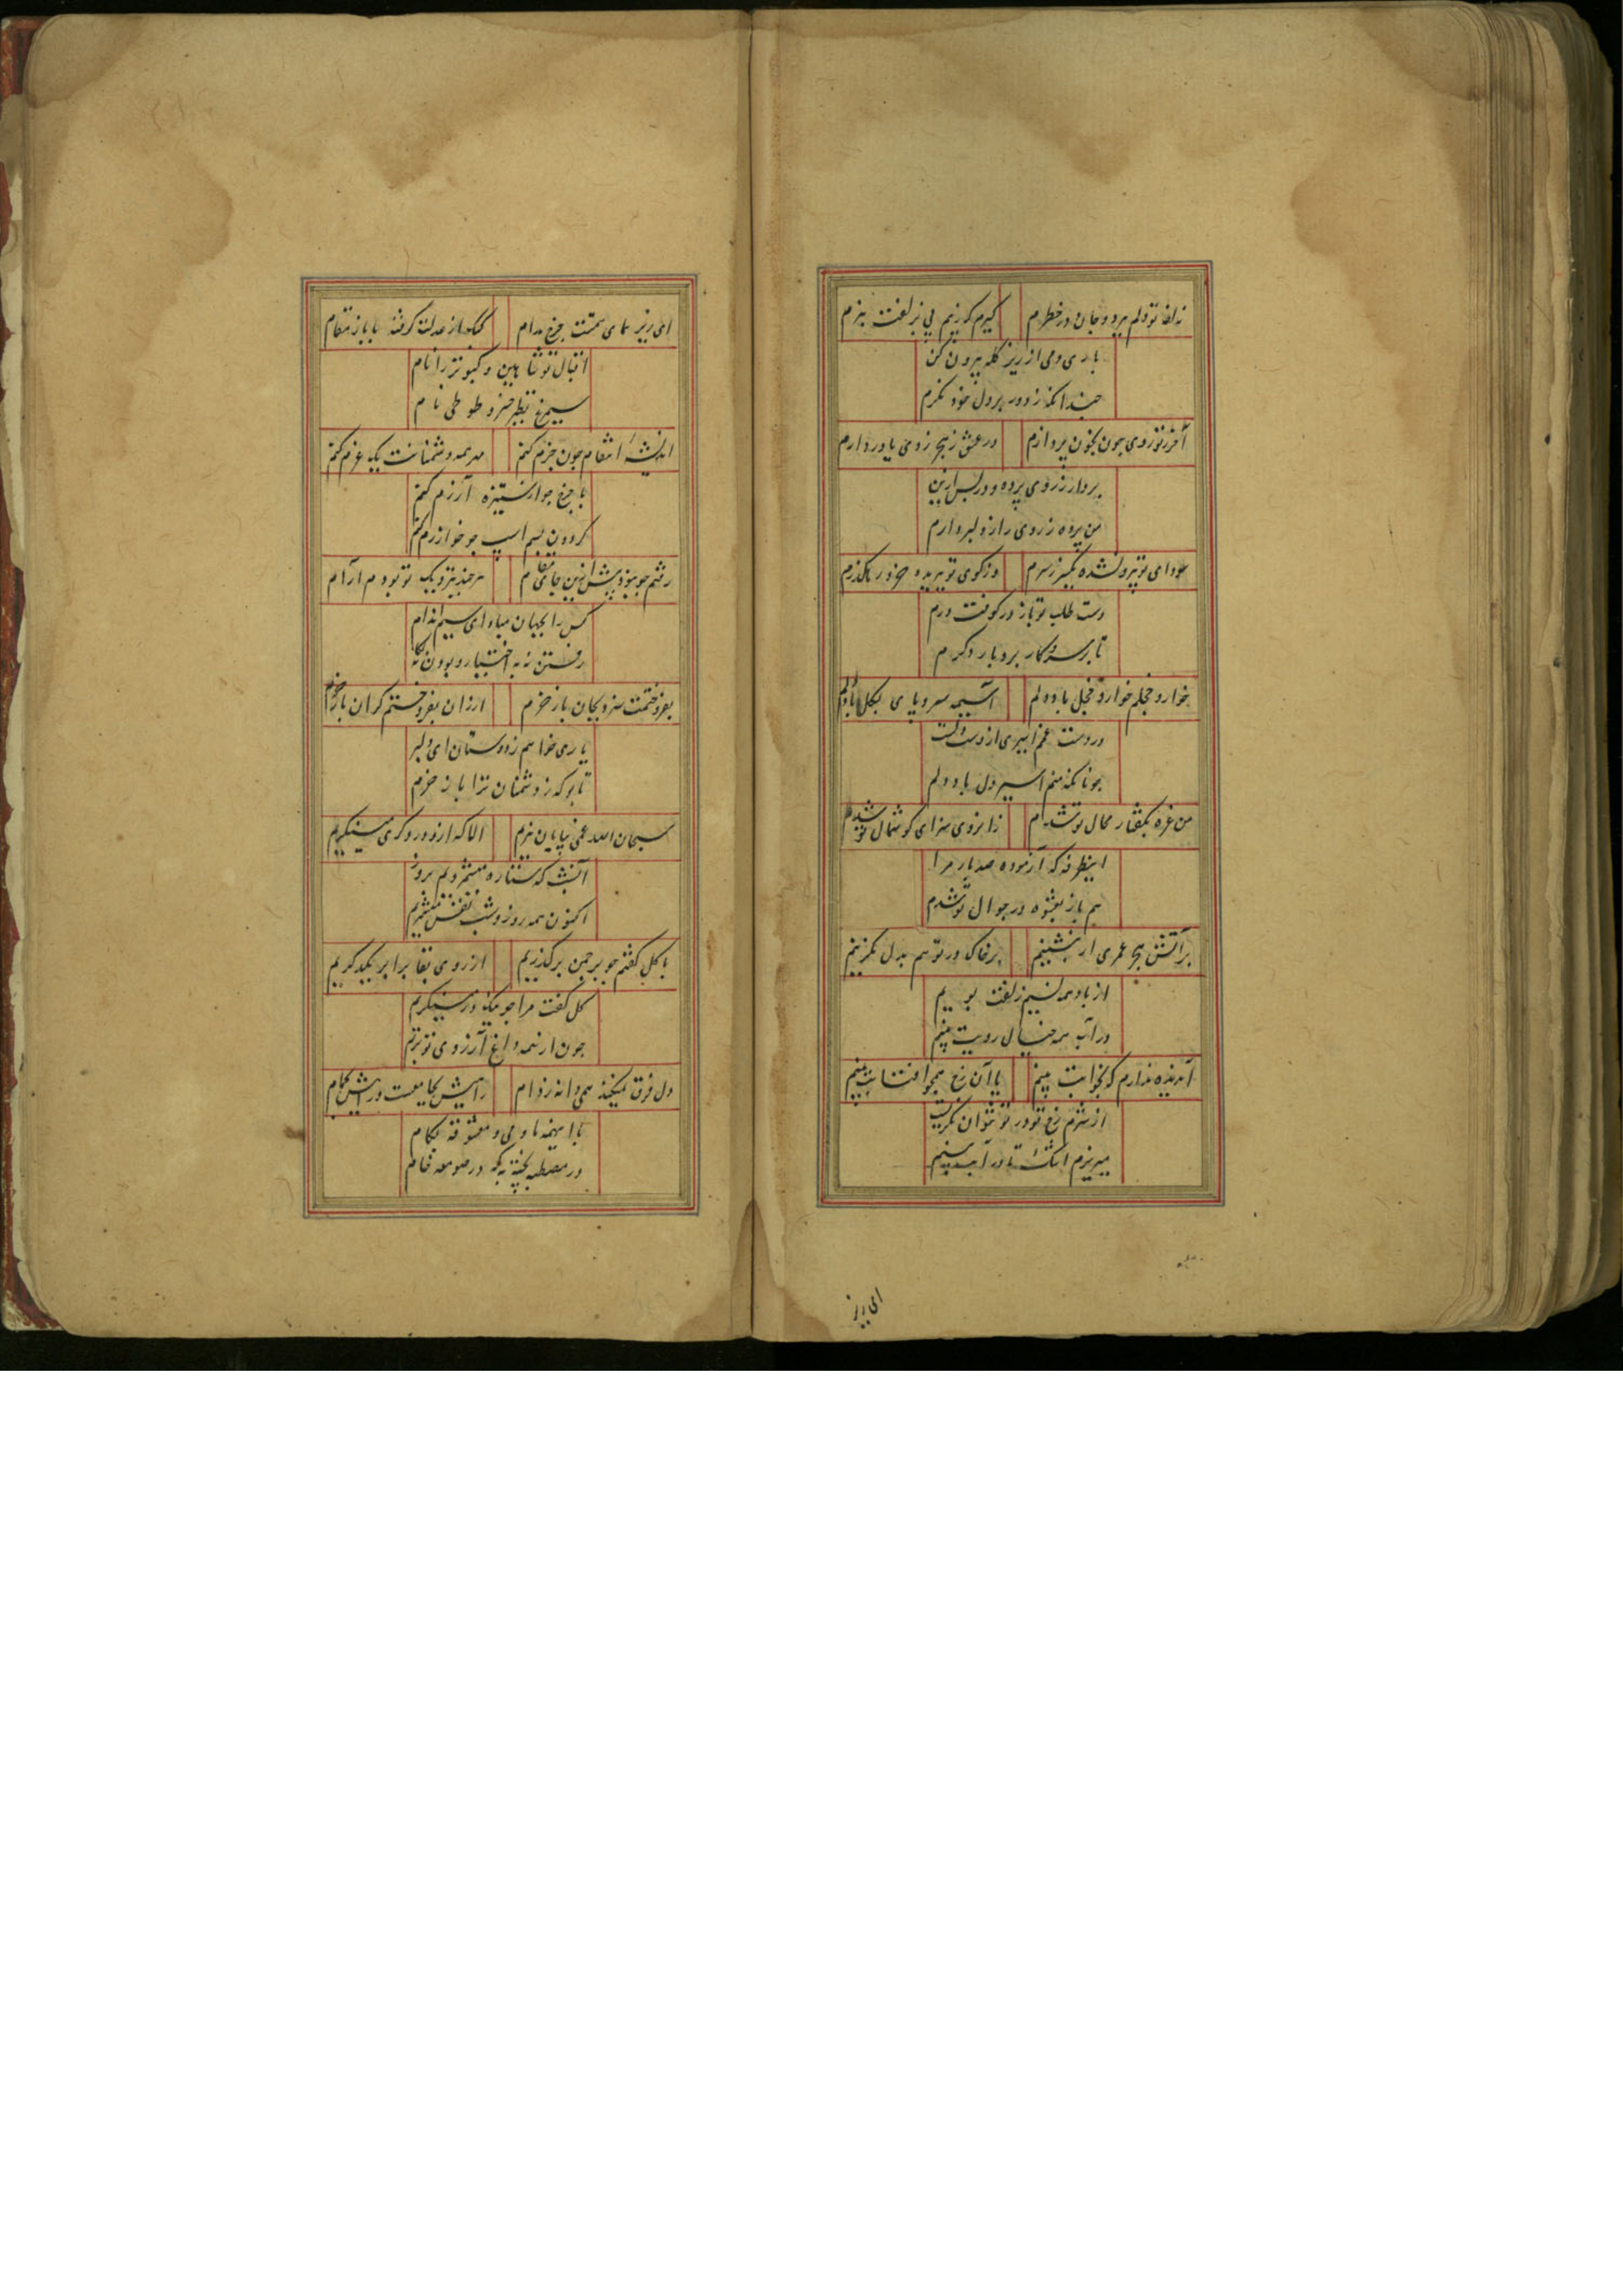 زلف تو دلم برد و جان در خطرم
گیرم که زیم بی ز لفت بزم
باری دمی از زیر کله بیرون کن
چندانکه ز دور بر دل خود نکرم
آخر ز تو روی چون بخون پردازم
در عشق ز هیچ روی یاور دارم
بردار ز روی پرده و در بس ازین
من پرده ز روی راز دل بردارم
سودای تو بیرون نشده یکسر ز سرم
وز کوی تو ببریده خود را نکذرم
دست طلب تو باز در کوفت درم
تا بر سر و کار برد بار دکرم
خوار و خجلم خوار و خجل باد دلم
آسیمه سر و پای بکل باد دلم
در دست غم اسیری از دست دلست
چونانکه منم اسیر دل باد دلم
من غره بکفتار محال تو شدم
زان روی سزای کوشمال تو شدم
اینطرفه که آزموده صد بار مرا
هم باز بعشوه در جوال تو شدم
بر آتش هجر عمری ار بنشینم
بر خاک در تو هم بدل نکزینم
از باد همه نسیم زلفت بویم
در آب همه خیال رویت بینم
آن دیده ندارم که بخوابت بینم
یا آن رخ همچو آفتابت بینم
از شرم رخ تو در تو نتوان نکریست
میریزم اشک تا در آبت بینم
ای زیر
ای زیر همای همتت چرخ مدام
کبک از عدلت کرفته با باز مقام
اقبال تو شاهین و کبوتر را نام
سیمرغ نظیر خسرو طوطی نام
اندیشه انتقام چون جزم کنم
مر همه دشمنانت یک عزم کنم
با چرخ چو از ستیزه آرزم کنم
کردون بسم اسپ چو خوارزم کنم
رفتم چو نبود بیش ازین جای مقام
هر چند بنزدیک تو بودم آرام
کس را بجهان مباد ای سیم اندام
رفتن نه به اختیار و بودن نه بکام
بفروختمت سزد بجان باز خرم
ارزان بفروختم کران باز خرم
یاری خواهم ز دوستان ای دلبر
تا بو که ز دشمنان ترا باز خرم
سبحان الله غمی بپایان نبرم
الا که ازو در دکری مینکریم
آنشب که ستاره میشمردیم بروز
اکنون همه روز و شب نفس میشمریم
با کل کفتم چو بر چمن بر کذریم
از روی بقا برابر یکدکریم
کل کفت مرا چو نیک در مینکریم
چون ار همه داغ آرزوی تو بریم
دل فرق نمیکند همی دانه ز دام
راییش بجامعست و راییش بجام
با اینهمه ما و می و معشوقه بکام
در مصطبه پخته به که در صومعه خام